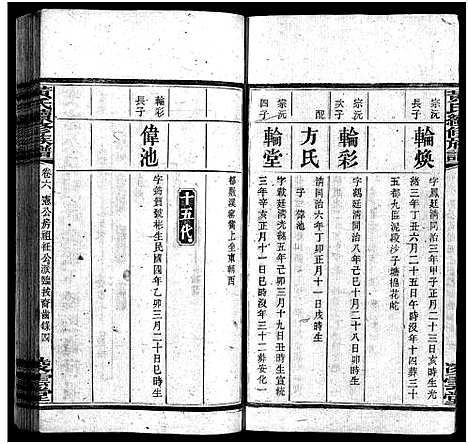 黃氏續修族譜
宗沅長子
輪煥
字鳳廷清同治三年甲子正月三十日亥時生光
緒三年丁丑正月二十日巳時沒年十四葬三十
五都九區泥段沙子塘棉花坨
宗沅次子
輪彩
字獻廷清同治八年己巳十月二十八日巳時生
配
方氏
清同治六年丁卯正月十六戌時生
子一 偉池
宗沅四子
輪堂
字載廷清光緒五年己卯三月十九日丑時生宣統
三年辛亥正月十一日巳時沒年三十二葬安化一
都殿溪窑黃上坐東朝西
十五代
輪彩長子
偉池
字錦雲號彬生民國四年乙卯三月二十日巳時生
黃氏續修族譜
卷六 憲公房祖任公派臨技育齒錄
四
敦雲堂